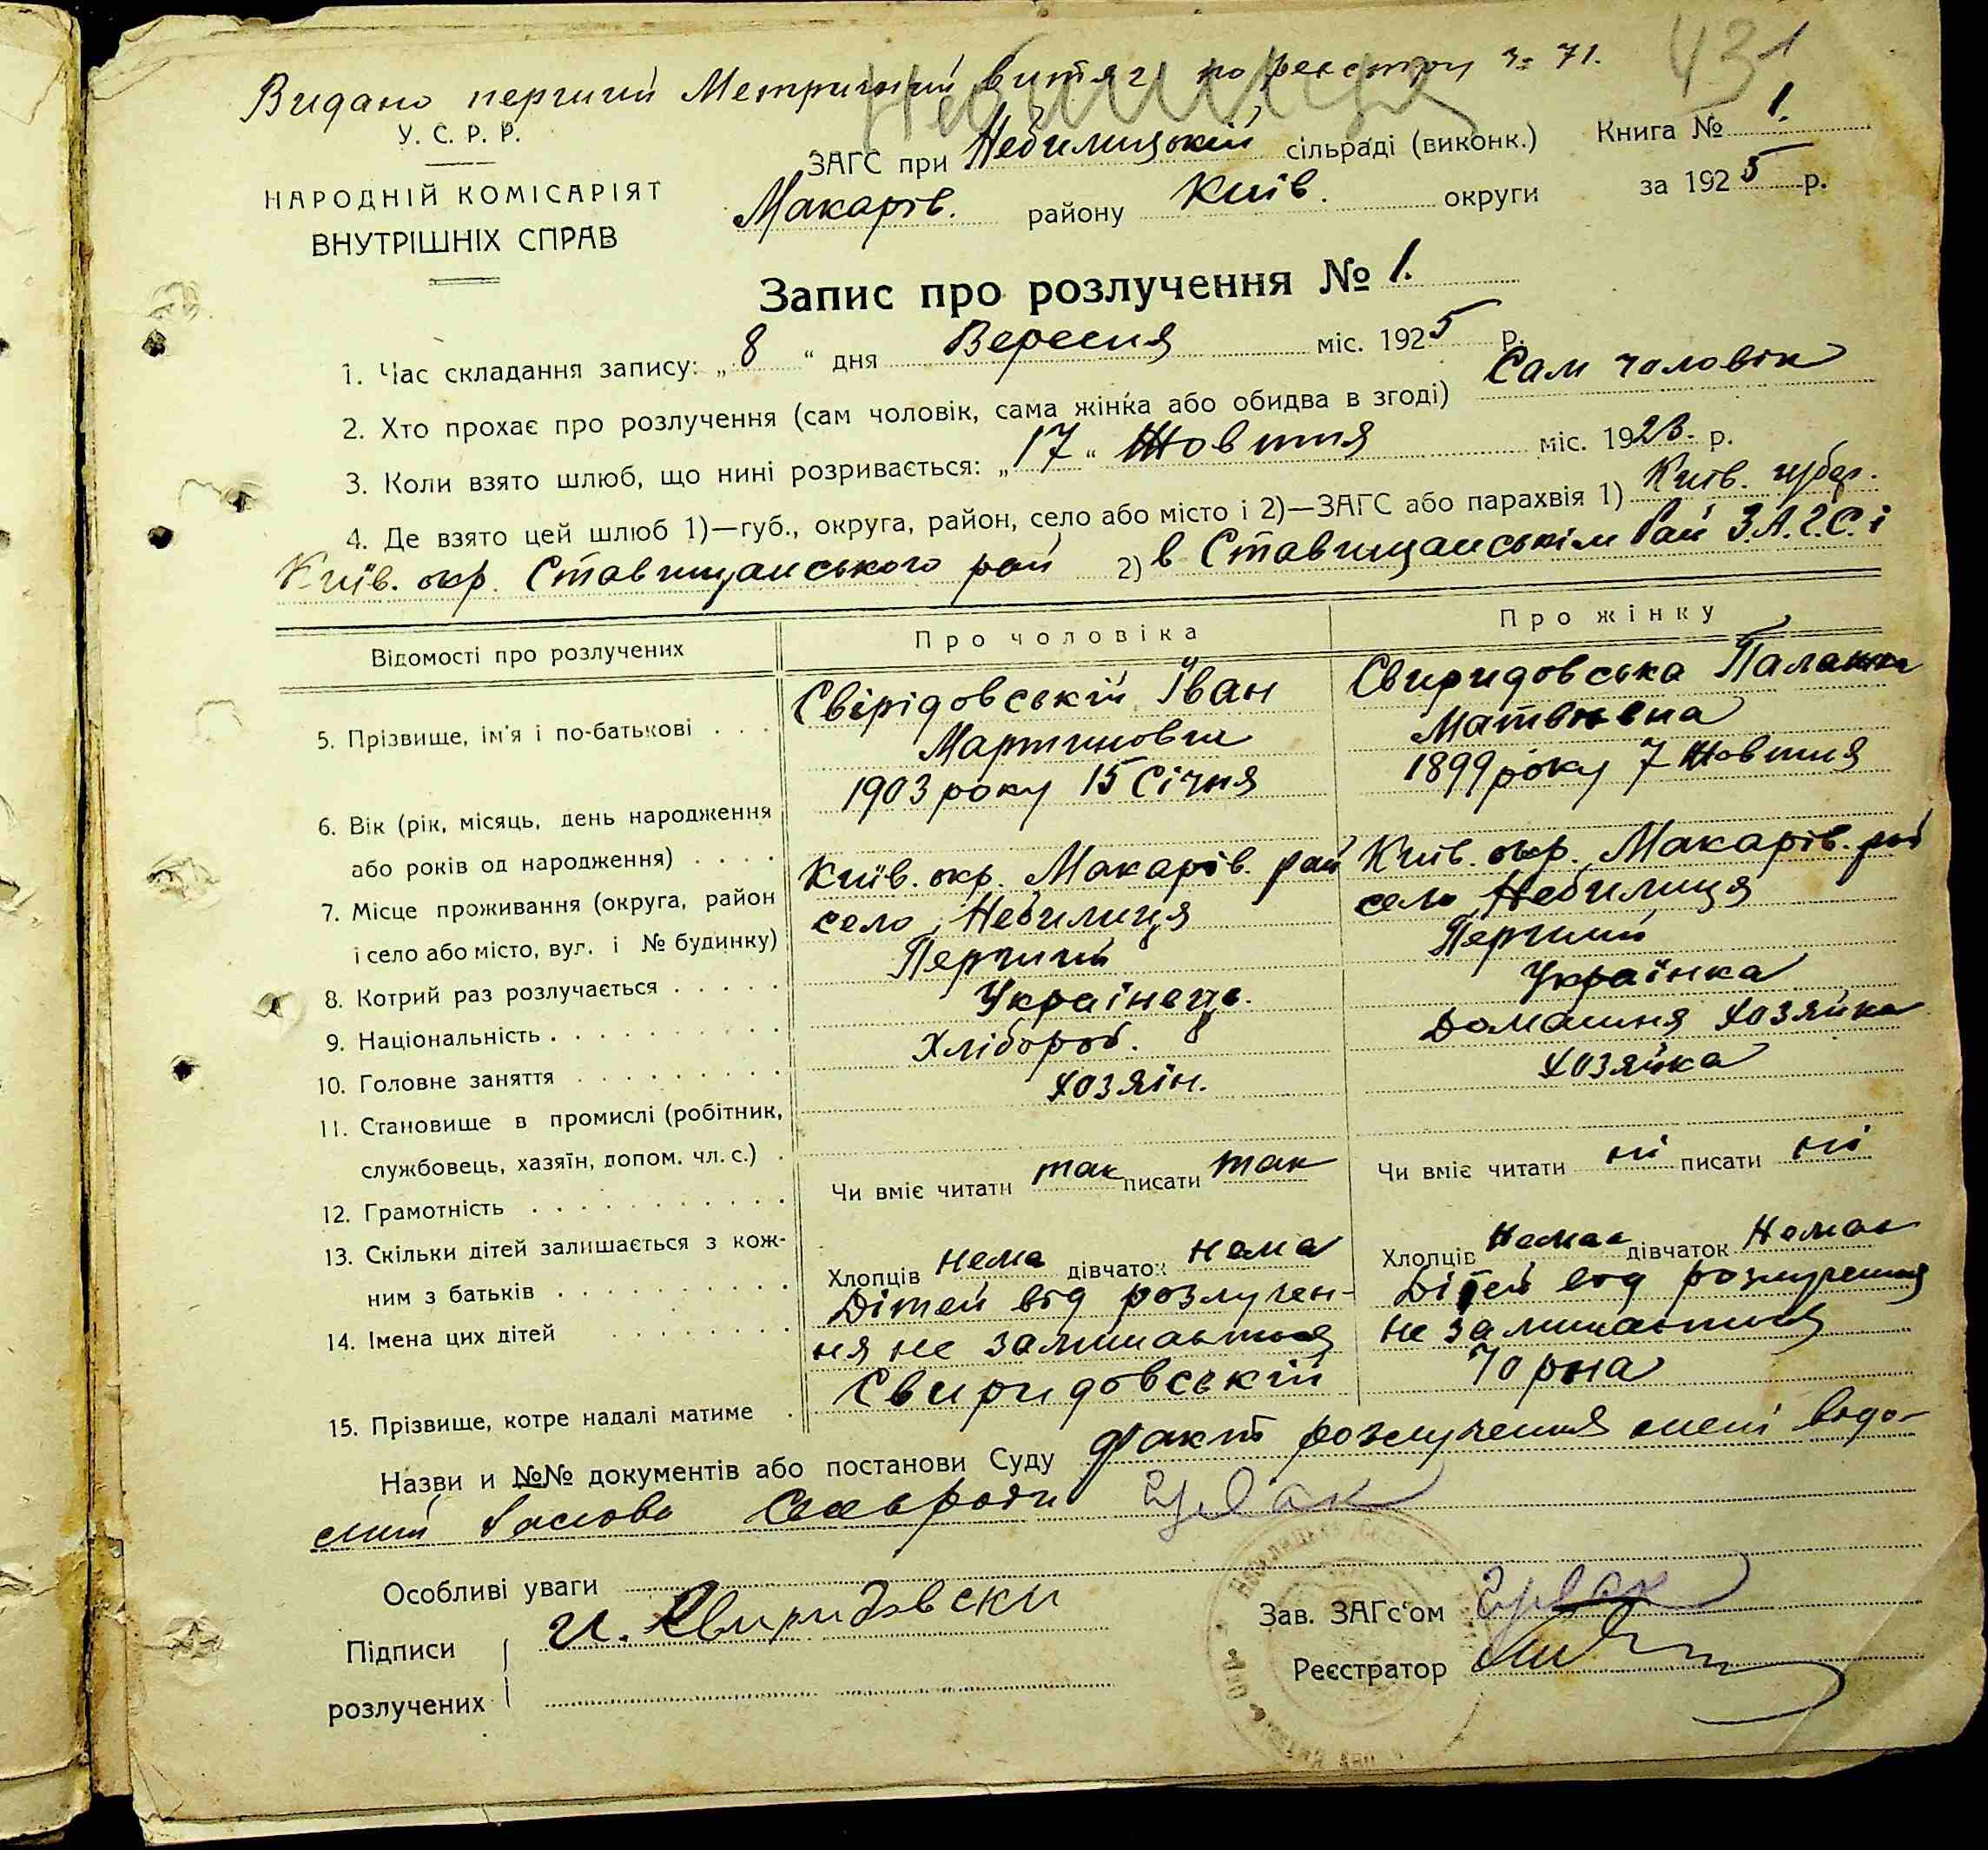 431
Видано перший Метричний витяг по реєстру № 71.
Небилиця
У. С. Р. Р.
НАРОДНІЙ КОМІСАРІЯТ
ВНУТРІШНІХ СПРАВ
ЗАГС при Небилицькій сільраді (виконк.) Книга № 1.
Макарів. району Київ. округи за 1925 р.
Запис про розлучення № 1.
1. Час складання запису: „8“ дня Вересня міс. 1925 р.
2. Хто прохає про розлучення (сам чоловік, сама жінка або обидва в згоді) Сам чоловік
3. Коли взято шлюб, що нині розривається: „17“ Жовтня міс. 1923. р.
4. Де взято цей шлюб 1)—губ., округа, район, село або місто і 2)—ЗАГС або парахвія 1) Київ. губер.
Київ. окр. Ставищанського рай 2) в Ставищанськім Рай З.А.Г.С. і
Відомості про розлучених Про чоловіка Про жінку
5. Прізвище, ім'я і по-батькові . . . Свірідовській Іван Мартинович Свиридовська Палажка Матвієвна
6. Вік (рік, місяць, день народження
або років од народження) . . . . 1903 року 15 Січня 1899 року 7 Жовтня
7. Місце проживання (округа, район
і село або місто, вул. і № будинку) Київ. окр. Макарів. рай село Небилиця Київ. окр. Макарів. рай село Небилиця
8. Котрий раз розлучається . . . . . Перший Перший
9. Національність . . . . . . . . . Українець. Українка
10. Головне заняття . . . . . . . . . Хлібороб. Домашня хозяйка
11. Становище в промислі (робітник,
службовець, хазяїн, допом. чл. с.) . хозяін. хозяйка
12. Грамотність . . . . . . . . . . . Чи вміє читати так писати так Чи вміє читати ні писати ні
13. Скільки дітей залишається з кож-
ним з батьків . . . . . . . . . . Хлопців нема дівчаток нема Хлопців Немає дівчаток Немає
14. Імена цих дітей . . . . . . . . Дітей від розлучен-
ня не залишається Дітей від розлучення
не залишається
15. Прізвище, котре надалі матиме . Свиридовській Чорна
Назви и №№ документів або постанови Суду факт розлучення мені відо-
мий
Особливі уваги
Підписи И. Свиридовски Зав. ЗАГс'ом
розлучених Реєстратор